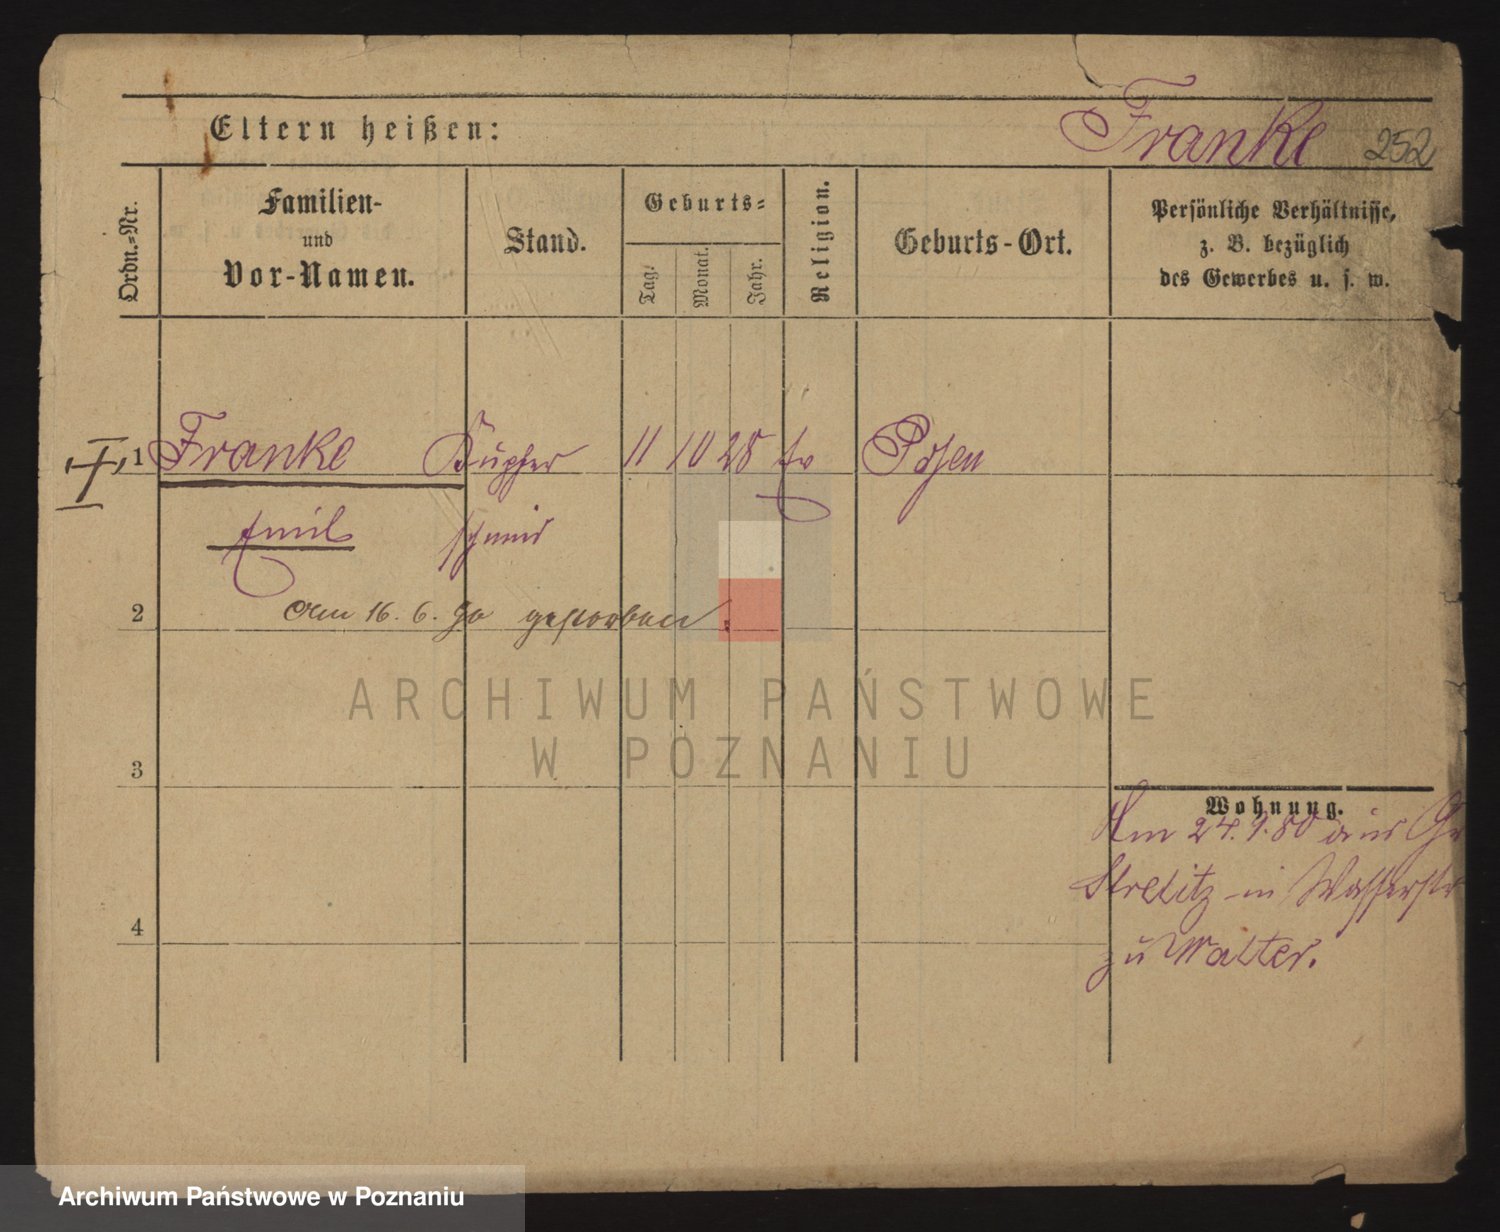 Franke 252
Eltern heißen:
Ordn.=Nr.
Familien-
und
Vor-Namen.
Stand.
Geburts=
Tag.
Monat.
Jahr.
Religion.
Geburts-Ort.
Persönliche Verhältnisse,
z. B. bezüglich
des Gewerbes u. s. w.
1 Franke Kupfer 11 10 28 ev Posen
Emil schmid
2 Am 16. 6. 90 gestorben.
ARCHIWUM PAŃSTWOWE
W POZNANIU
3
Wohnung.
Am 24.9.80 aus Gr
Strelitz in Wasserstr
4
zu Walter.
Archiwum Państwowe w Poznaniu